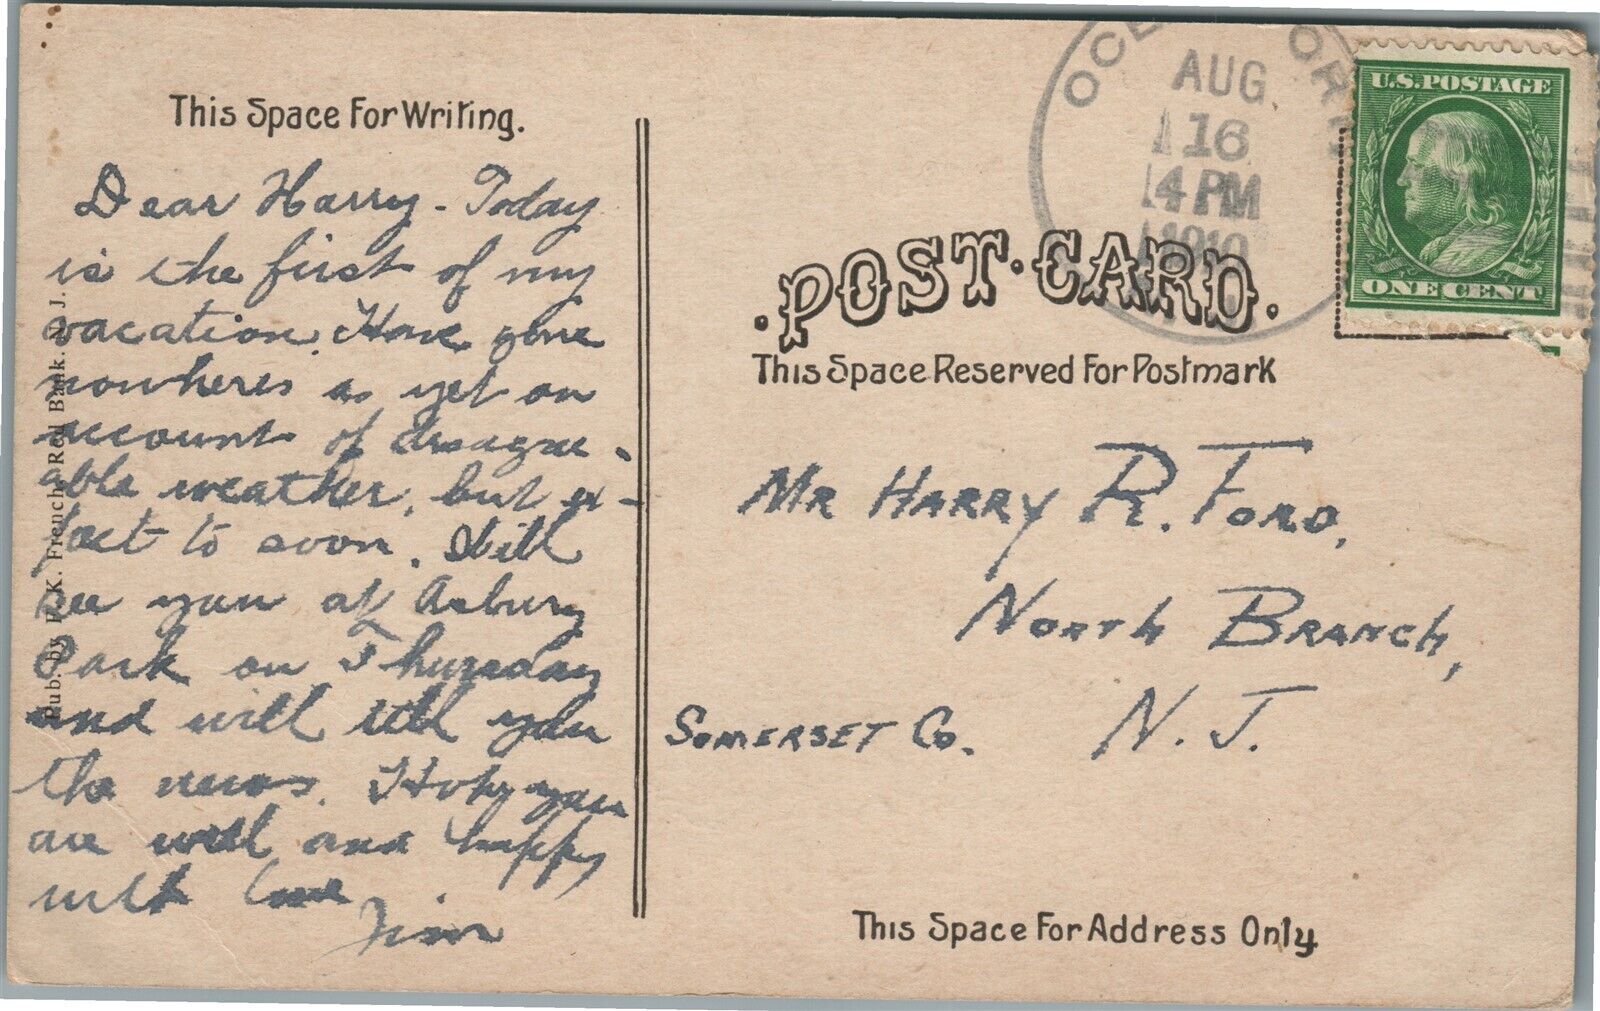 This Space For Writing.
Dear Harry - Today
is the first of my
vacation. Have gone
nowheres as yet on
account of disagree-
able weather, but ex-
pect to soon. Will
see you at Asbury
Park on Thursday
and will tell you
the news. Hope you
are well and happy
with love
Jim
Pub. by K. French, Red Bank. N. J.
AUG
16
4 PM
1910
U.S. POSTAGE
ONE CENT
POST CARD.
This Space Reserved For Postmark
Mr Harry R. Ford,
North Branch,
Somerset Co. N. J.
This Space For Address Only